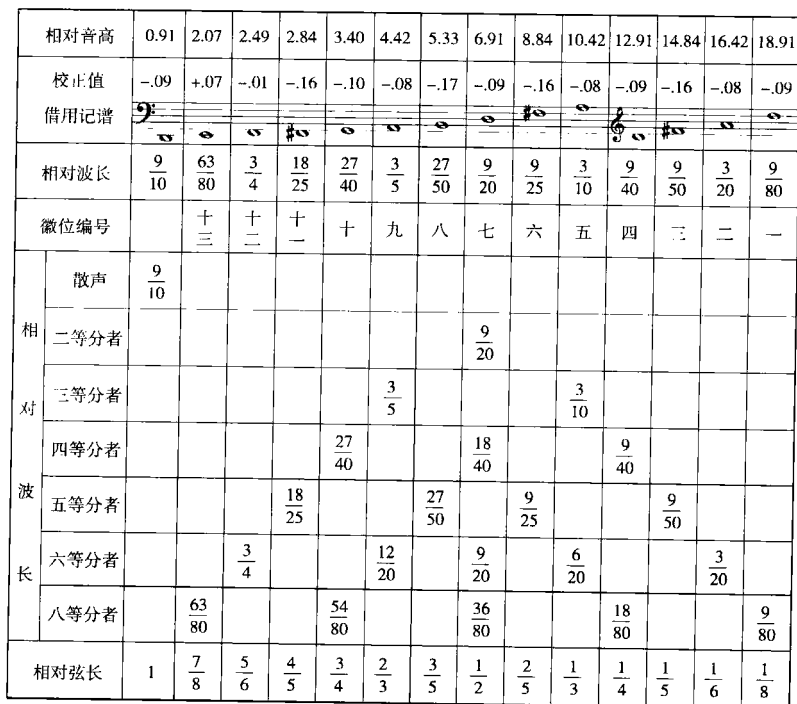 相对音高 0.91 2.07 2.49 2.84 3.40 4.42 5.33 6.91 8.84 10.42 12.91 14.84 16.42 18.91
校正值 -.09 +.07 -.01 -.16 -.10 -.08 -.17 -.09 -.16 -.08 -.09 -.16 -.08 -.09
借用记谱
相对波长 9/10 63/80 3/4 18/25 27/40 3/5 27/50 9/20 9/25 3/10 9/40 9/50 3/20 9/80
徽位编号 十三 十二 十一 十 九 八 七 六 五 四 三 二 一
相对波长
散声 9/10
二等分者 9/20
三等分者 3/5 3/10
四等分者 27/40 18/40 9/40
五等分者 18/25 27/50 9/25 9/50
六等分者 3/4 12/20 9/20 6/20 3/20
八等分者 63/80 54/80 36/80 18/80 9/80
相对弦长 1 7/8 5/6 4/5 3/4 2/3 3/5 1/2 2/5 1/3 1/4 1/5 1/6 1/8